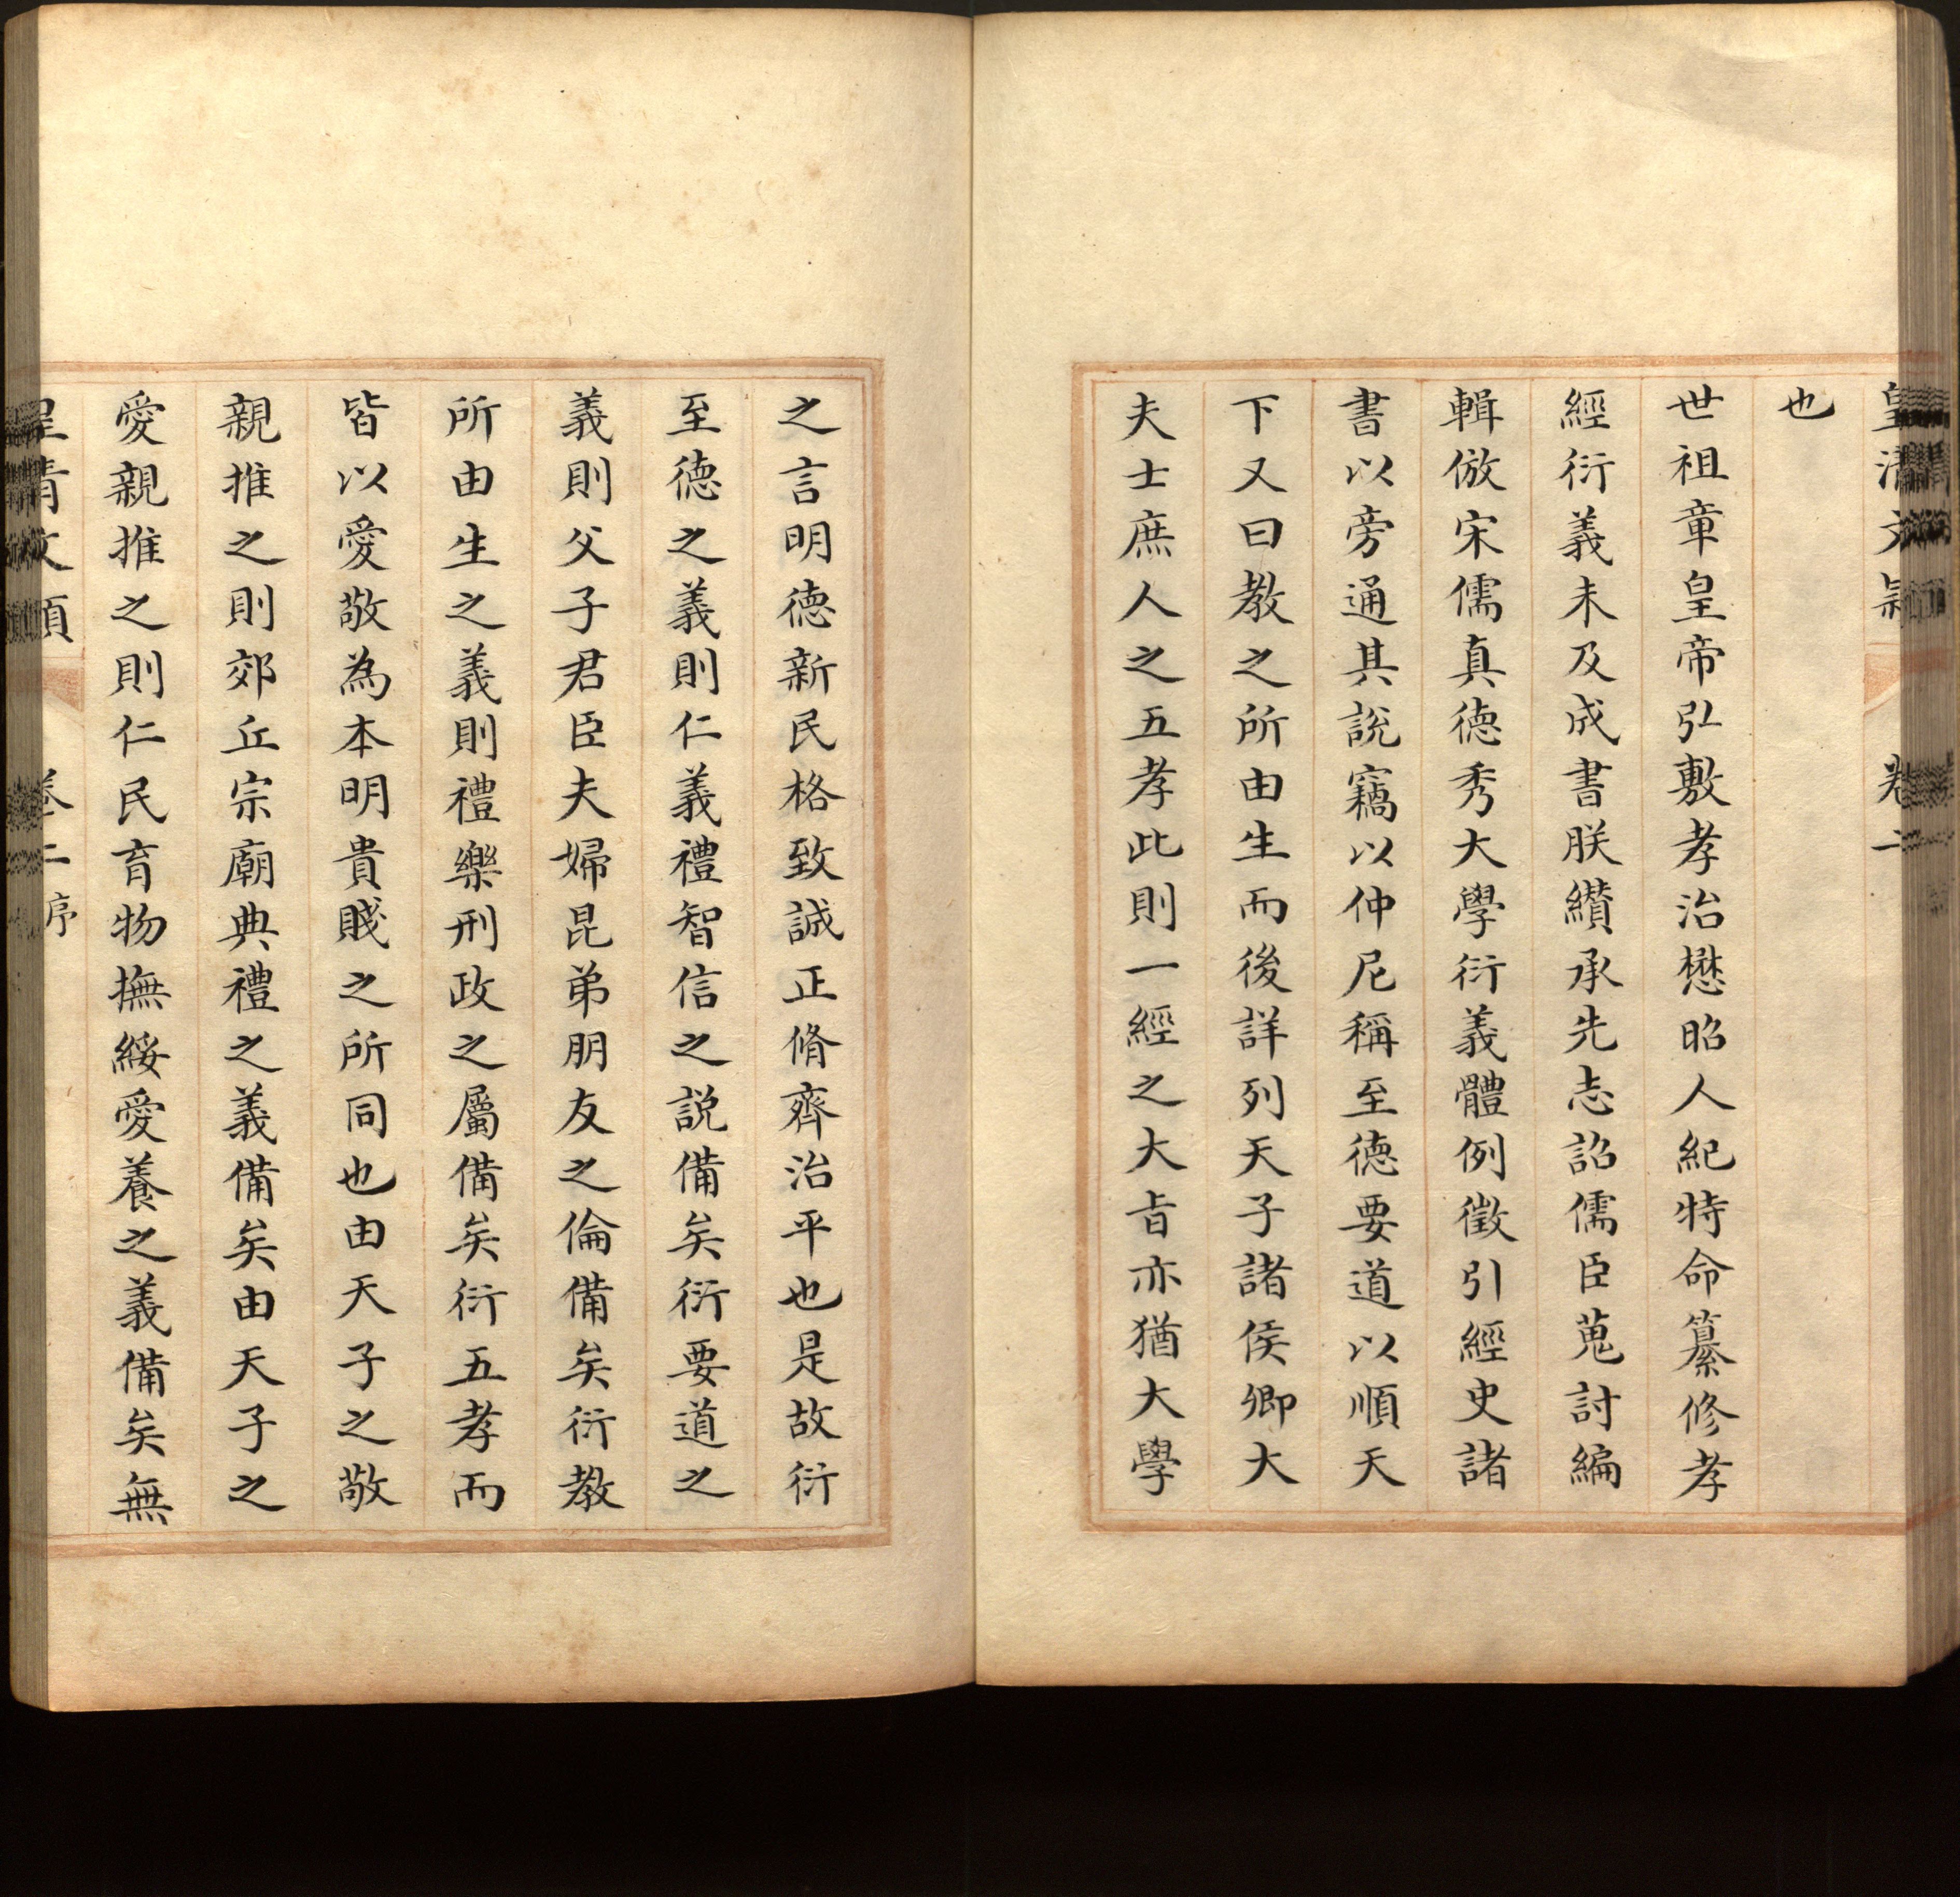 皇清文穎 卷二
也
世祖章皇帝弘敷孝治懋昭人紀特命纂修孝
經衍義未及成書朕纘承先志詔儒臣蒐討編
輯倣宋儒真德秀大學衍義體例徵引經史諸
書以旁通其說竊以仲尼稱至德要道以順天
下又曰教之所由生而後詳列天子諸侯卿大
夫士庶人之五孝此則一經之大旨亦猶大學
之言明德新民格致誠正脩齊治平也是故衍
至德之義則仁義禮智信之說備矣衍要道之
義則父子君臣夫婦昆弟朋友之倫備矣衍教
所由生之義則禮樂刑政之屬備矣衍五孝而
皆以愛敬為本明貴賤之所同也由天子之敬
親推之則郊丘宗廟典禮之義備矣由天子之
愛親推之則仁民育物撫綏愛養之義備矣無
皇清文穎 卷二 序